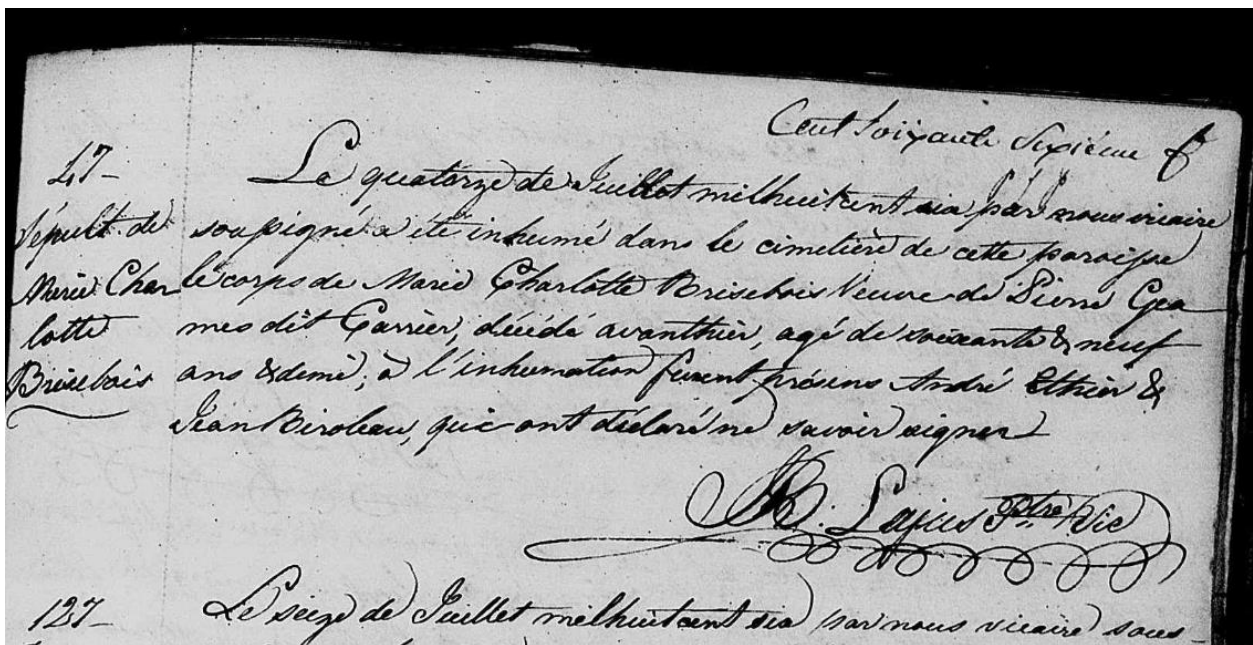 Cent Soixante Sixiéme f
47-
Sépult. de
Marie Char
lotte
Brisebois
Le quatorze de Juillet mil huit cent six par nous vicaire
soussigné a été inhumé dans le cimetière de cette paroisse
le corps de Marie Charlotte Brisebois Veuve de Pierre Gea
mes dit Carrier, décédé avanthier, agé de soixante & neuf
ans & demi; à l'inhumation furent présens André Ethier &
Jean Biroleau, qui ont déclaré ne savoir signer
JB. Lajus Ptre Vic
127-
Le seize de Juillet mil huit cent six par nous vicaire sous-